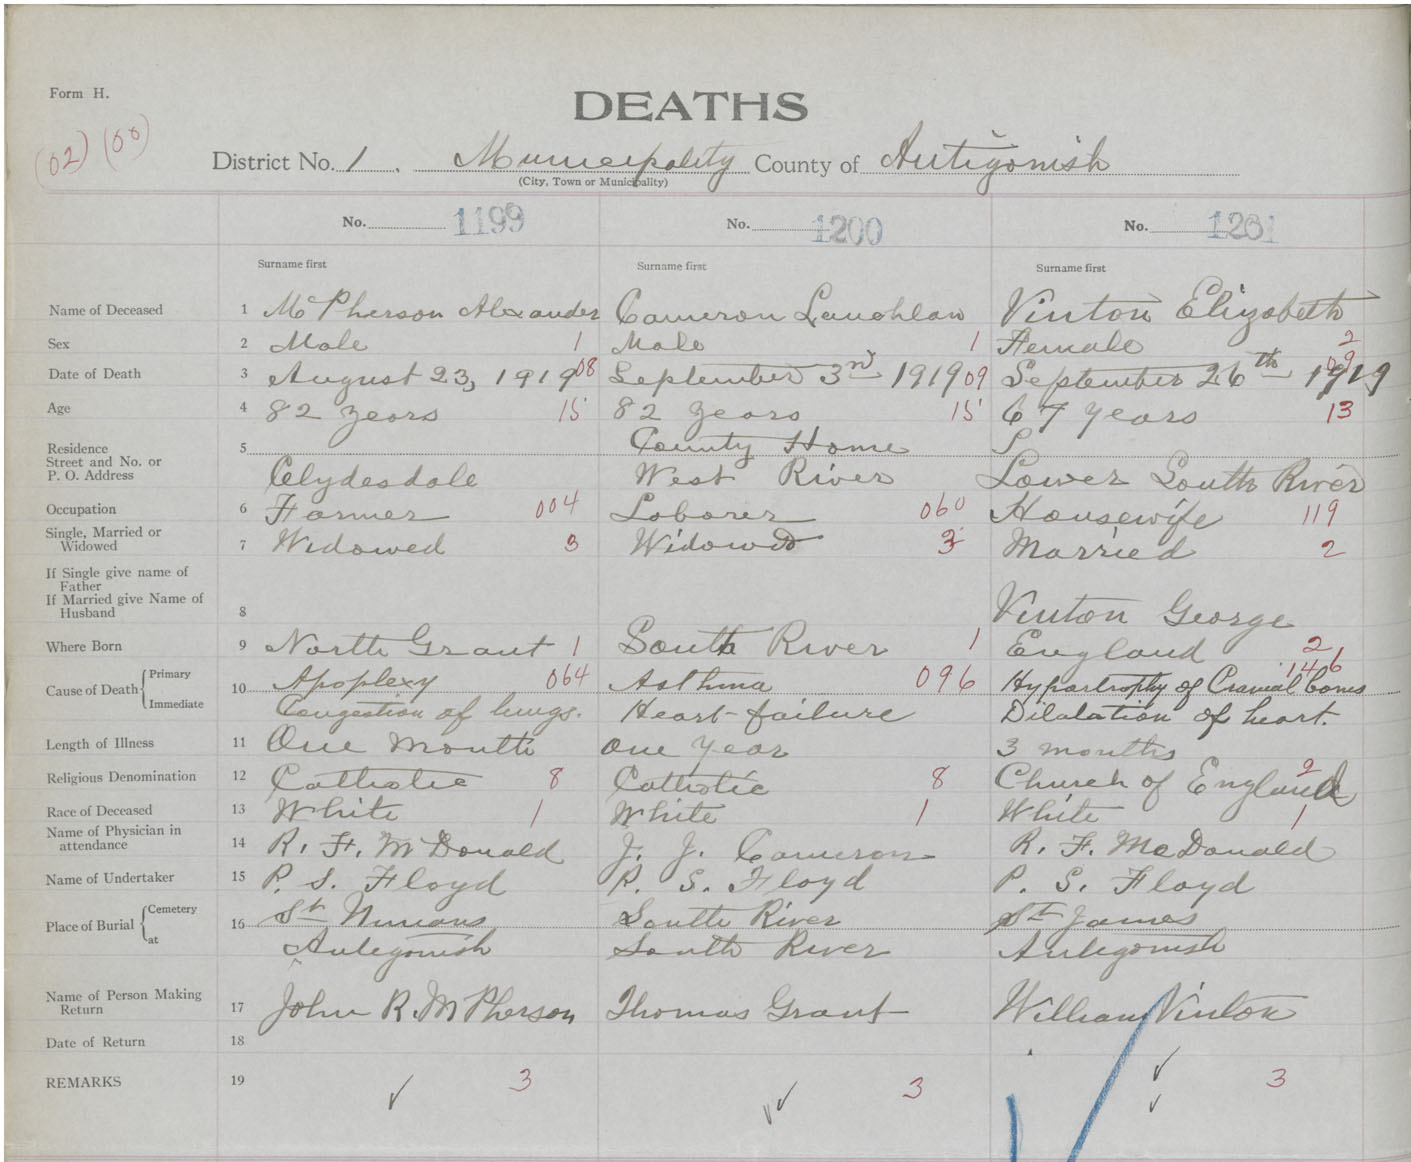 Form H.
DEATHS
(02) (00)
District No. 1. Municipality County of Antigonish
(City, Town or Municipality)
No. 1199 No. 1200 No. 1201
Surname first Surname first Surname first
Name of Deceased 1 McPherson Alexander Cameron Lauchlan Vinton Elizabeth
Sex 2 Male 1 Male 1 Female 2
Date of Death 3 August 23, 1919 08 September 3rd 1919 09 September 26th 1919 09
Age 4 82 years 15 82 years 15 67 years 13
Residence 5 County Home S
Street and No. or
P. O. Address Clydesdale West River Lower South River
Occupation 6 Farmer 004 Laborer 060 Housewife 119
Single, Married or
Widowed 7 Widowed 3 Widowed 3 Married 2
If Single give name of
Father
If Married give Name of
Husband 8 Vinton George
Where Born 9 North Grant 1 South River 1 England 2
Cause of Death Primary 10 Apoplexy 064 Asthma 096 Hypertrophy of Cranial bones 146
Immediate Congestion of lungs. Heart-failure Dilatation of heart.
Length of Illness 11 One Month one year 3 months
Religious Denomination 12 Catholic 8 Catholic 8 Church of England 2
Race of Deceased 13 White 1 White 1 White 1
Name of Physician in
attendance 14 R. F. McDonald J. J. Cameron R. F. McDonald
Name of Undertaker 15 P. S. Floyd P. S. Floyd P. S. Floyd
Place of Burial Cemetery 16 St Ninians South River St James
at Antigonish South River Antigonish
Name of Person Making
Return 17 John R. McPherson Thomas Grant William Vinton
Date of Return 18
REMARKS 19 3 3 3